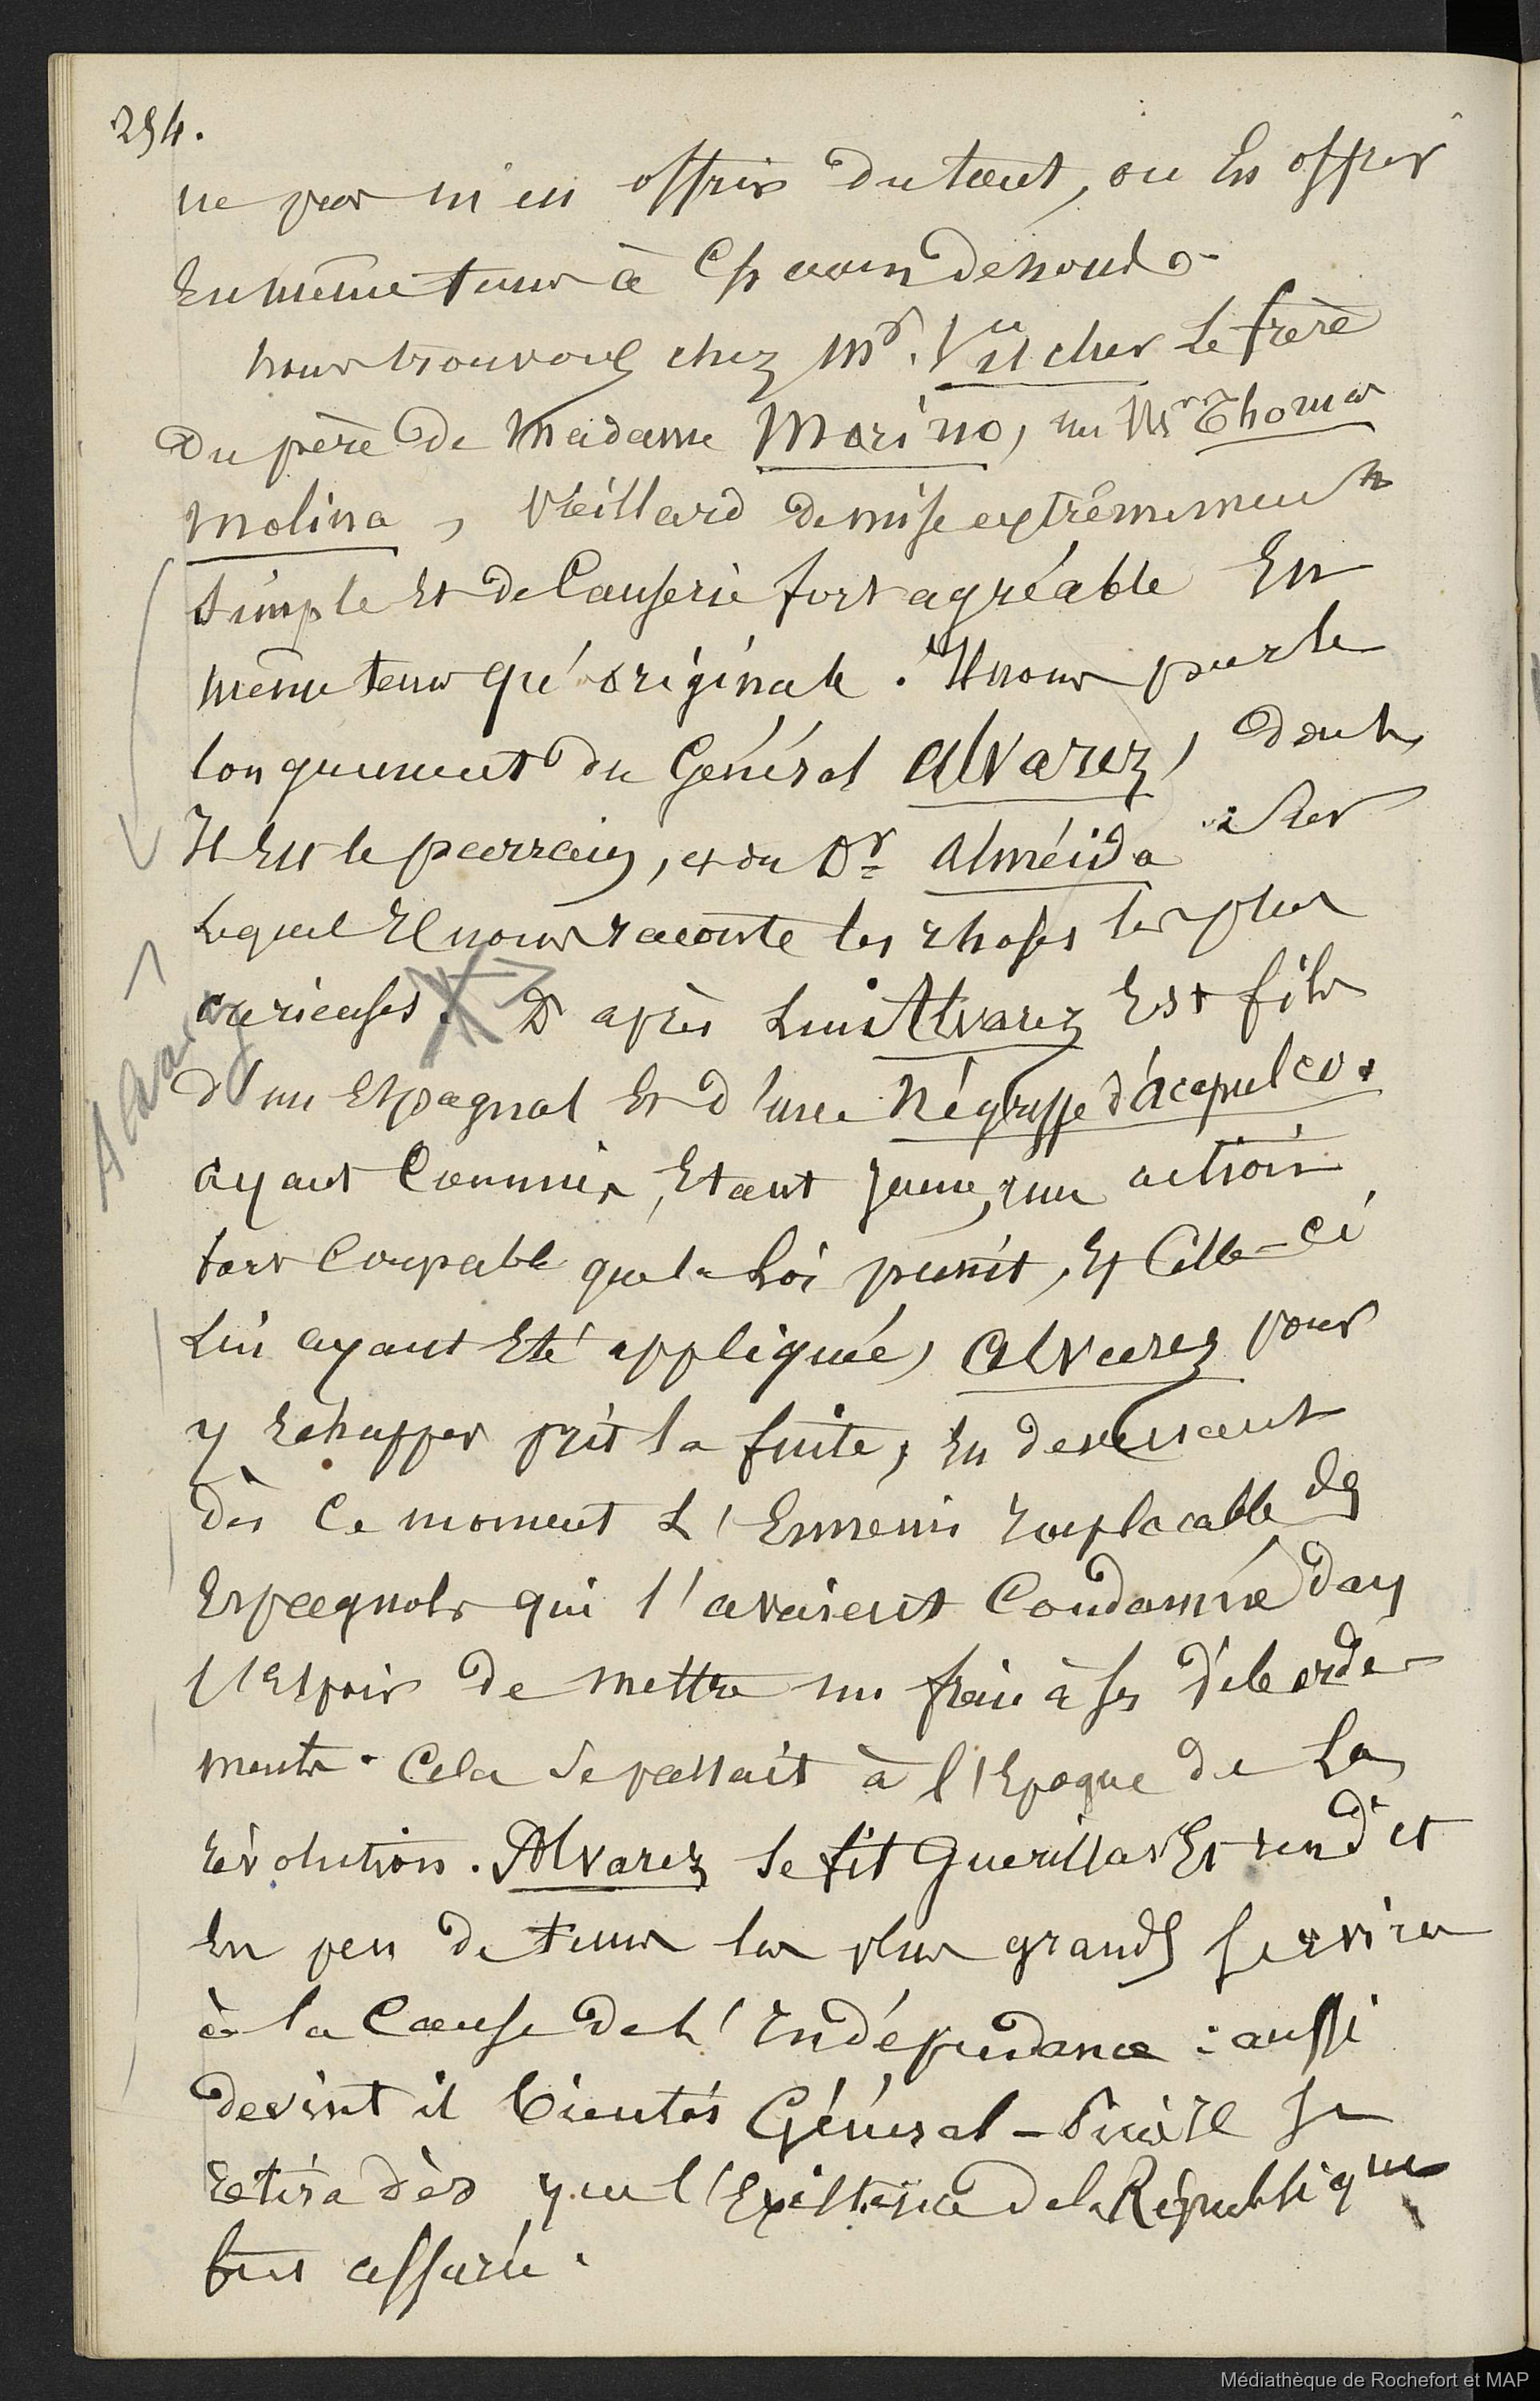 254.
ne pas m'en offrir du tout, ou en offrir
En même tems à chacun de nous.
nous trouvons chez Mr. Vilcher le frère
du père de Madame Marino, un Mr Thomas
Molina, vieillard de mise extrêmement
simple Et de Causerie fort agréable En
même tems qu'originale. Il nous parle
longuement du Général Alvarez, dont
Il Est le parrain, et du Dr Alméida sur
lequel Il nous raconte les choses les plus
curieuses. D'après lui Alvarez Est fils
d'un Espagnol Et d'une Négresse d'acapulco.
Alvarez
ayant Commis, Etant jeune, une action
fort Coupable que la Loi punit, Et Celle-ci
Lui ayant Eté appliquée, Alvarez pour
y Echapper prit la fuite, En devenant
dès Ce moment L'Ennemi Implacable des
Espagnols qui l'avaient Condamné dans
l'Espoir de mettre un frein à ses déborde-
ments. Cela Se passait à l'Epoque de La
révolution. Alvarez se fit Guerillas Et rendit
En peu de tems les plus grands services
à la Cause de L'Indépendance : aussi
devint il bientôt Général - Puis Il se
retira dès que l'Existence de la République
fut assurée.
Médiathèque de Rochefort et MAP